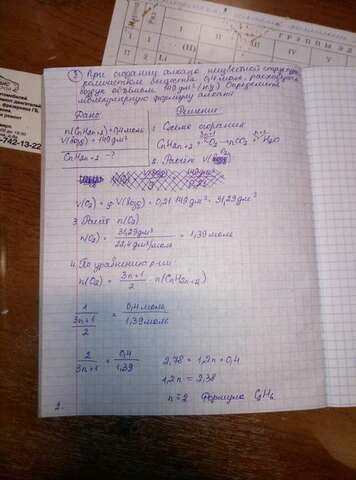 5 При сгорании алкана неизвестной структуры
количеством вещества 0,4 моль, расходуется
воздух объемом 149 дм³ (н.у.) Определите
молекулярную формулу алкана
Дано: Решение:
n(CnH2n+2) = 0,4 моль
V(возд) = 149 дм³
CnH2n+2 - ?
1. Схема сгорания
CnH2n+2 + O2 → nCO2 + H2O
2. Расчёт V(O2)
V(O2) = φ · V(возд) = 0,21 · 149 дм³ = 31,29 дм³
3. Расчёт n(O2)
n(O2) = 31,29 дм³ / 22,4 дм³/моль = 1,39 моль
4. По уравнению р-ии:
n(O2) = 3n+1 / 2 · n(CnH2n+2)
1 / 3n+1 / 2 = 0,4 моль / 1,39 моль
2 / 3n+1 = 0,4 / 1,39 2,78 = 1,2n + 0,4
1,2n = 2,38
n = 2 Формула C2H6
2.
742-13-22